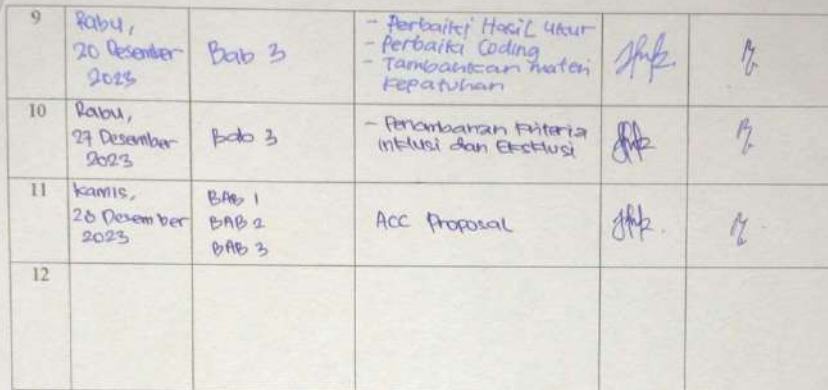 9
Rabu,
20 Desember
2023
Bab 3
- Perbaiki Hasil Ukur
- Perbaiki Coding
- Tambahkan materi
kepatuhan
10
Rabu,
27 Desember
2023
Bab 3
- Penambahan kriteria
inklusi dan Eksklusi
11
Kamis,
28 Desember
2023
BAB 1
BAB 2
BAB 3
ACC Proposal
12